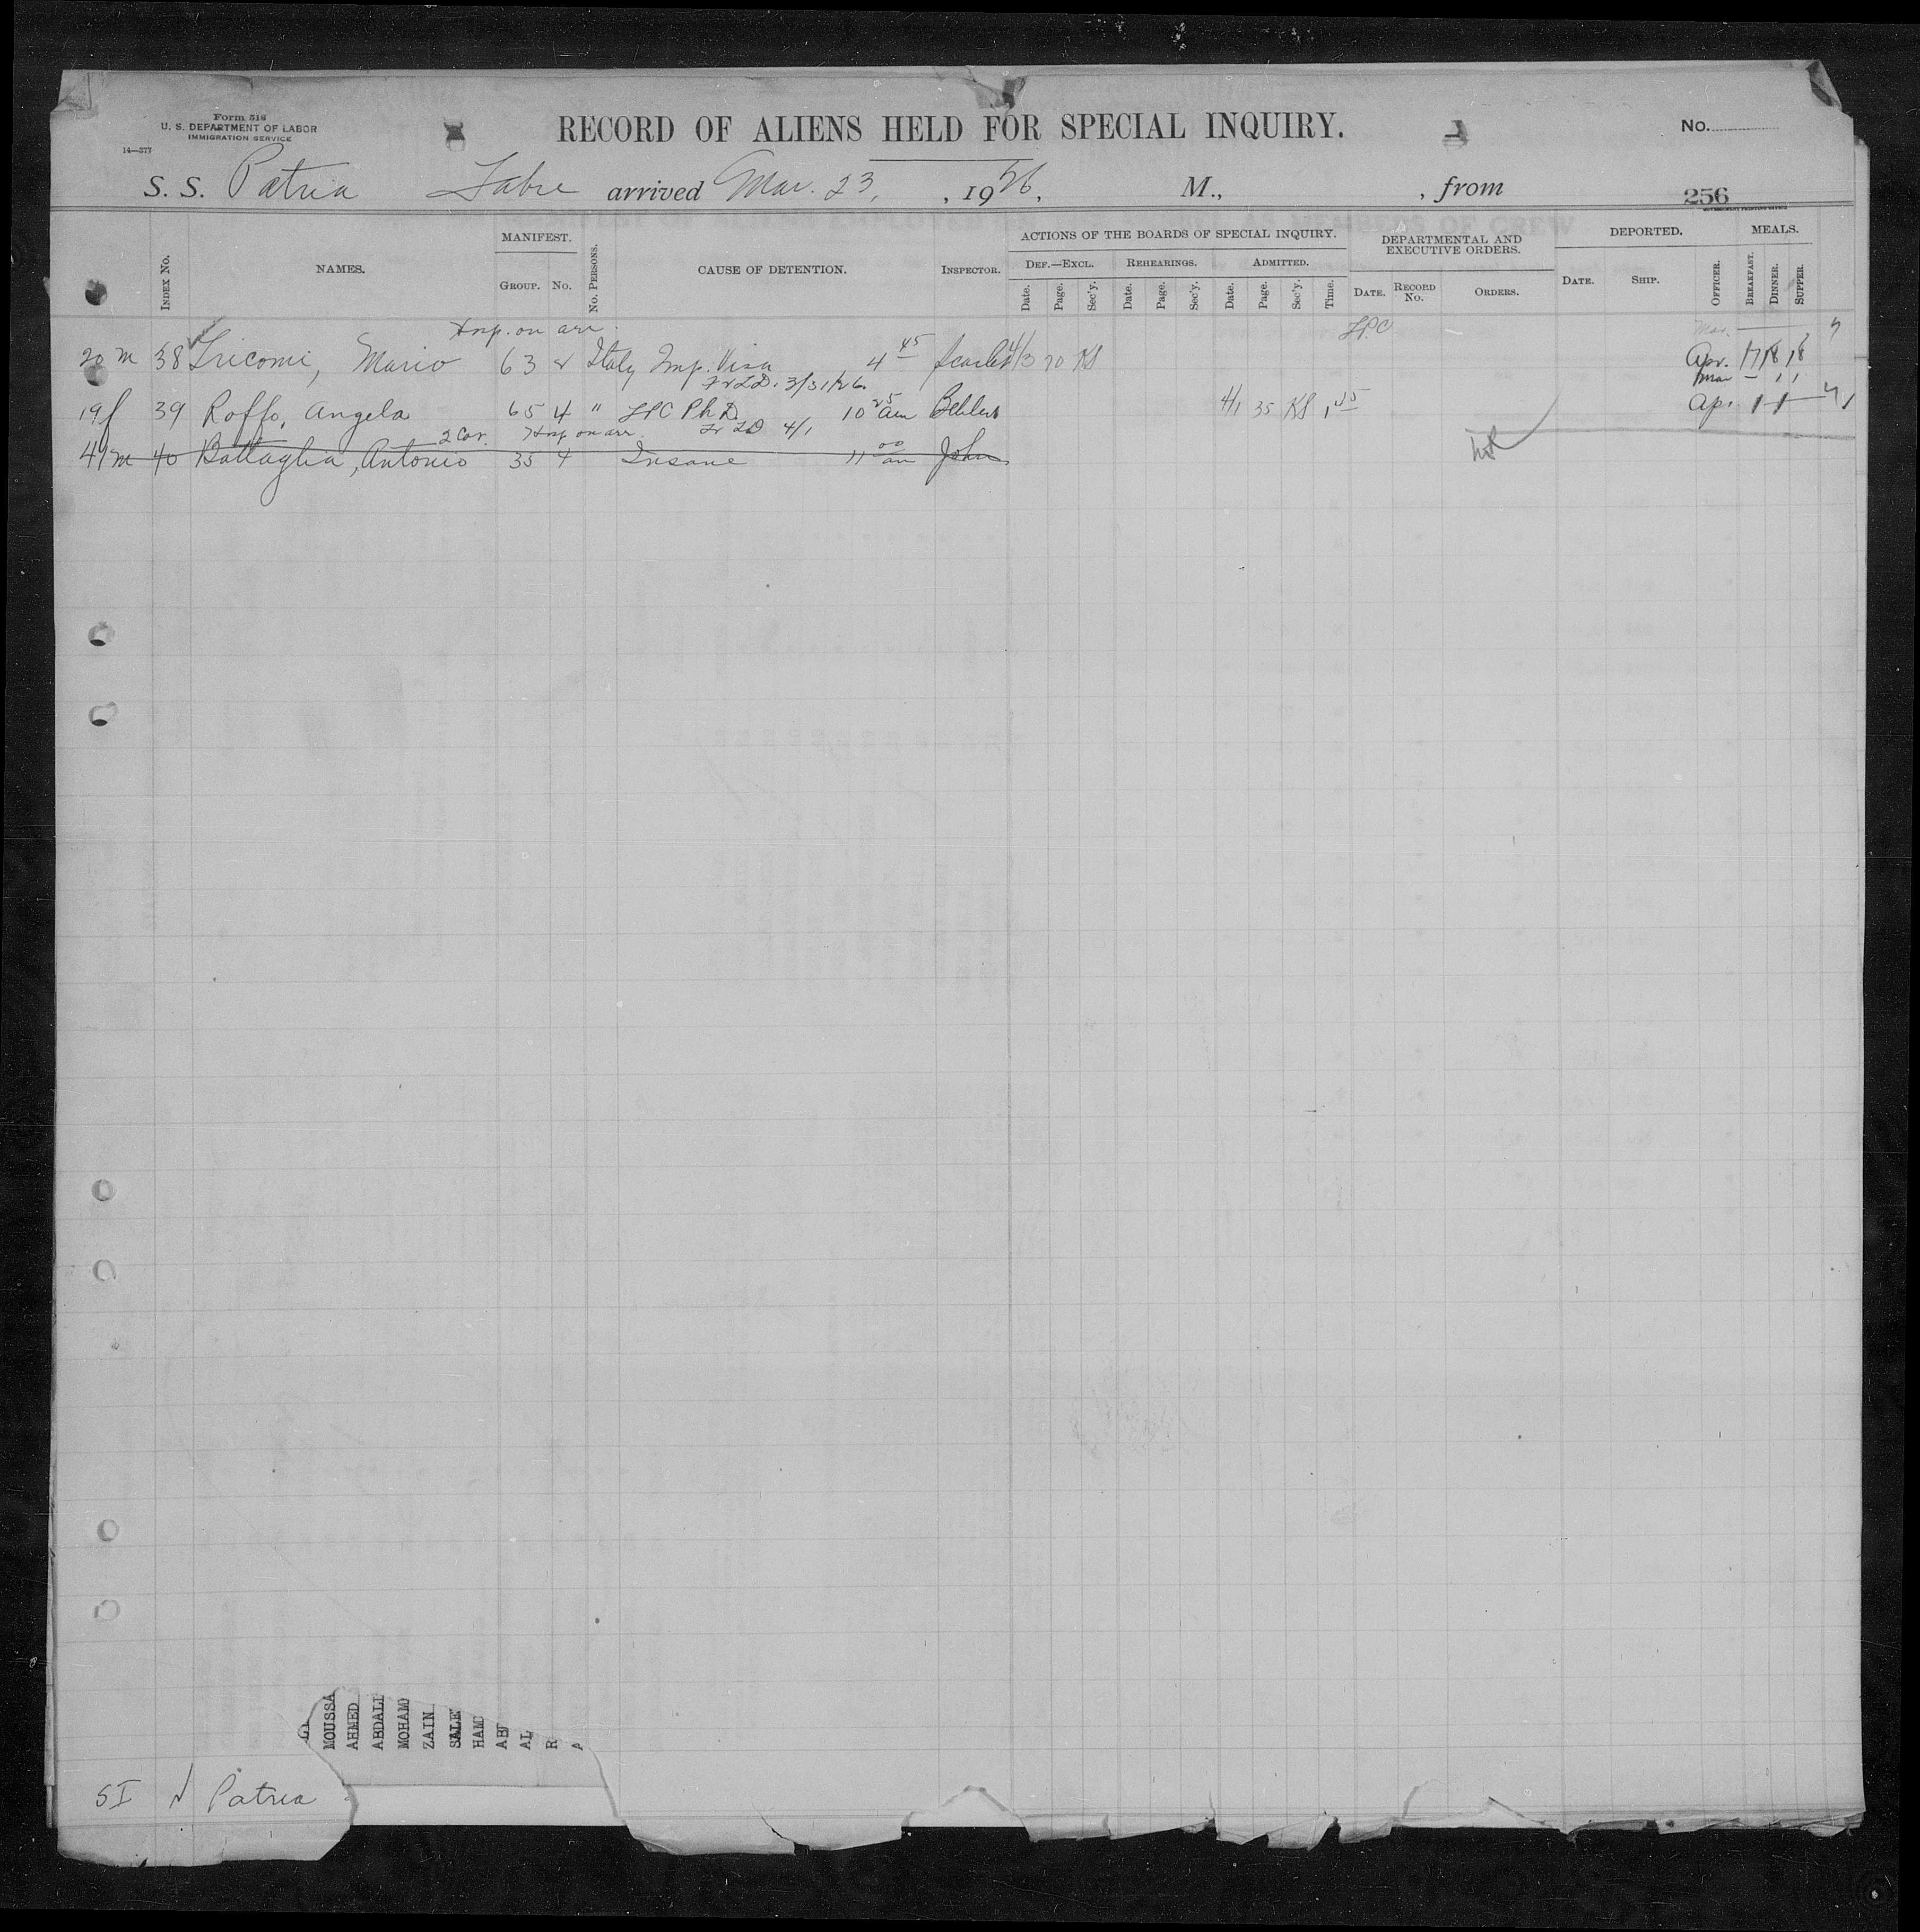 Form 518
U. S. DEPARTMENT OF LABOR
IMMIGRATION SERVICE
14—377
RECORD OF ALIENS HELD FOR SPECIAL INQUIRY.
No.
S. S. Patria Fabre arrived Mar. 23, , 1926, M., , from
256
GOVERNMENT PRINTING OFFICE
INDEX No.
NAMES.
MANIFEST.
GROUP. No.
No. PERSONS.
CAUSE OF DETENTION.
INSPECTOR.
ACTIONS OF THE BOARDS OF SPECIAL INQUIRY.
DEF.—EXCL. REHEARINGS. ADMITTED.
Date. Page. Sec'y. Date. Page. Sec'y. Date. Page. Sec'y. Time.
DEPARTMENTAL AND
EXECUTIVE ORDERS.
DATE. RECORD No. ORDERS.
DEPORTED.
DATE. SHIP. OFFICER.
MEALS.
BREAKFAST. DINNER. SUPPER.
Hosp. on arr. LPC Mar.
20 m 38 Tricomi, Mario 63 Italy Imp. Visa 4 45 Scarlet 4/3 70 KS Apr. 17 18 18
3/31/26. Mar
19 f 39 Roffo, Angela 65 4 " LPC Ph. D. 10 25 am 4/1 35 KS Apr. 1 1
Hosp on arr. 4/1
41 m 40 Battaglia, Antonio 35 4 Insane 11 00 am John
MOUSSA
AHMED
ABDALL
MOHAM
ZAIN
SALE
HAM
AB
AL
R
A
SI Patria